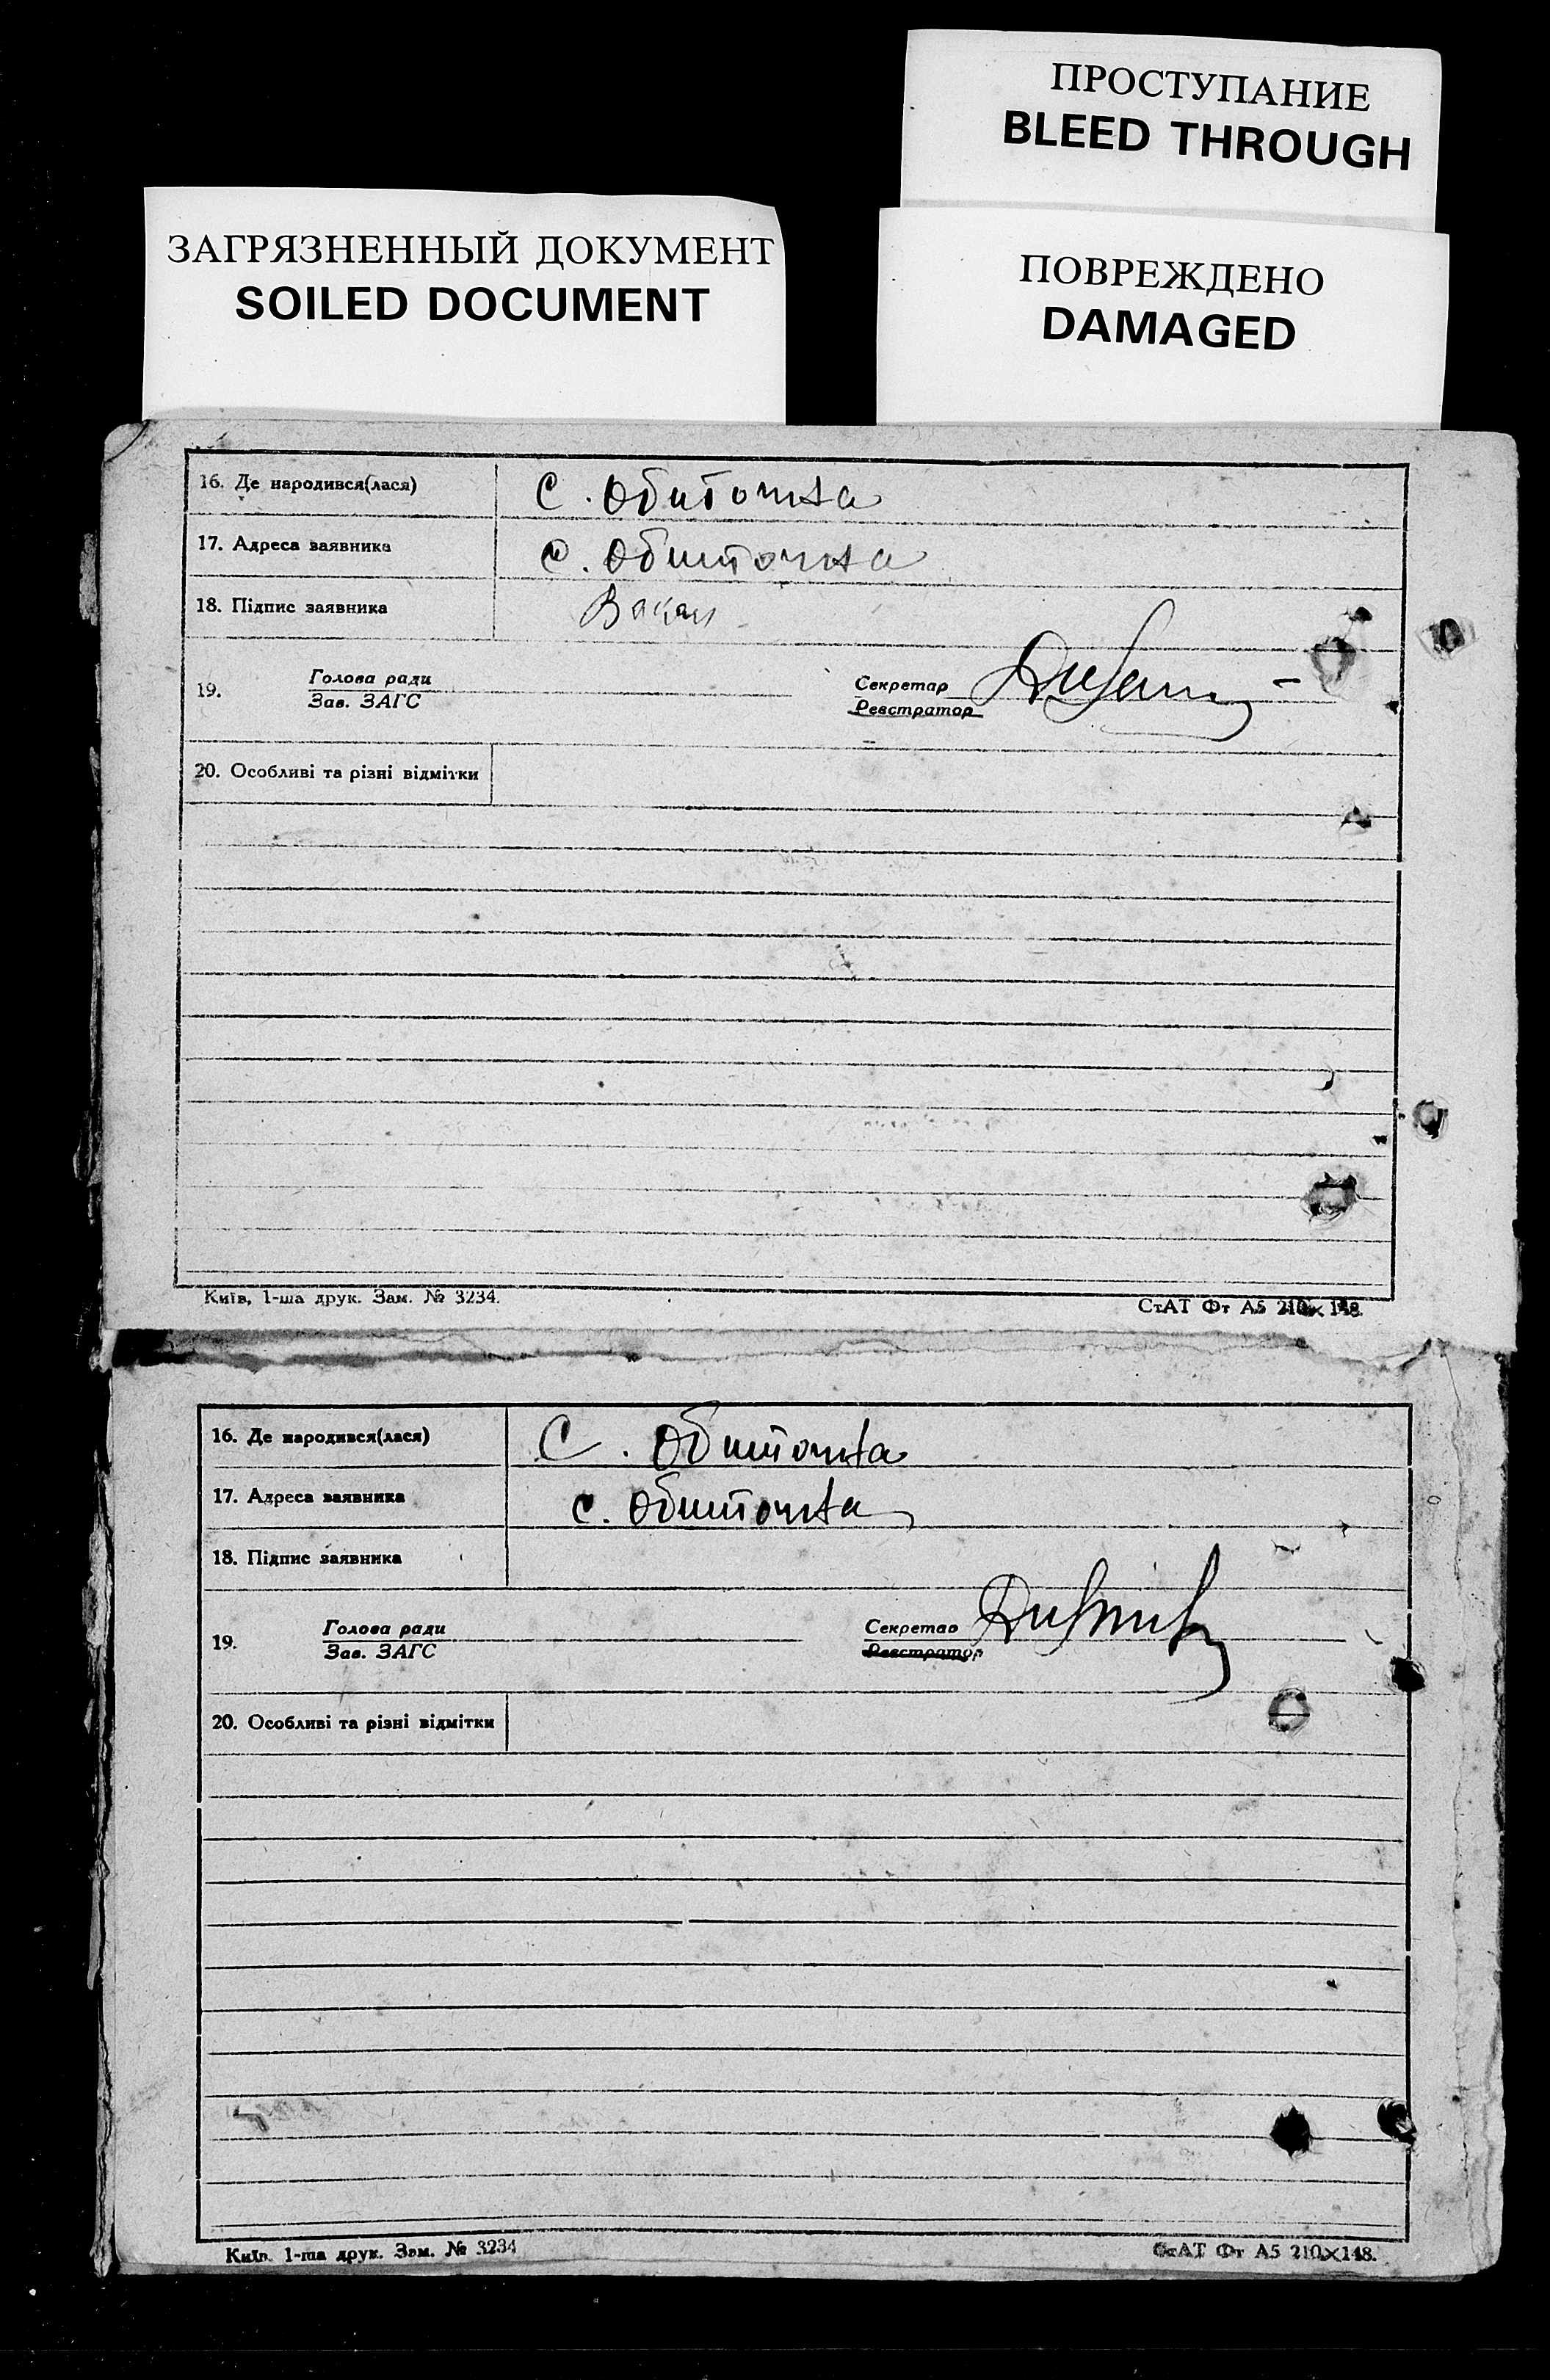 ПРОСТУПАНИЕ
BLEED THROUGH
ЗАГРЯЗНЕННЫЙ ДОКУМЕНТ
SOILED DOCUMENT
ПОВРЕЖДЕНО
DAMAGED
16. Де народився(лася) С. Обиточна
17. Адреса заявника с. Обиточна
18. Підпис заявника
19. Голова ради
Зав. ЗАГС
Секретар
Реєстратор
20. Особливі та різні відмітки
Київ, 1-ша друк. Зам. № 3234.
СтАТ Фт А5 210×148.
16. Де народився(лася) С. Обиточна
17. Адреса заявника с. Обиточна
18. Підпис заявника
19. Голова ради
Зав. ЗАГС
Секретар
Реєстратор
20. Особливі та різні відмітки
Київ. 1-ша друк. Зам. № 3234
СтАТ Фт А5 210×148.